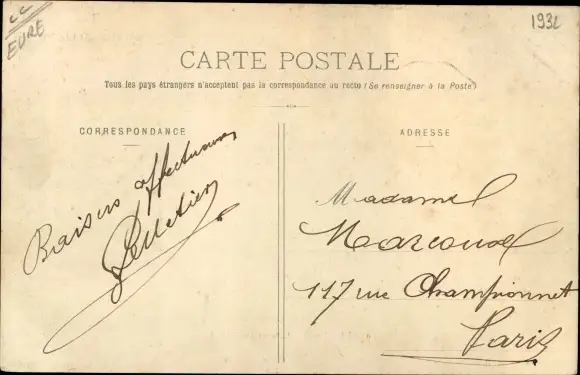 EURE
193
CARTE POSTALE
Tous les pays étrangers n'acceptent pas la correspondance au recto (Se renseigner à la Poste)
CORRESPONDANCE
Baisers affectueux
Pelletier
ADRESSE
Madame
Marcoud
117 rue Championnet
Paris